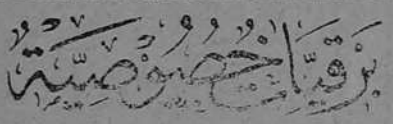 برقيات خصوصية